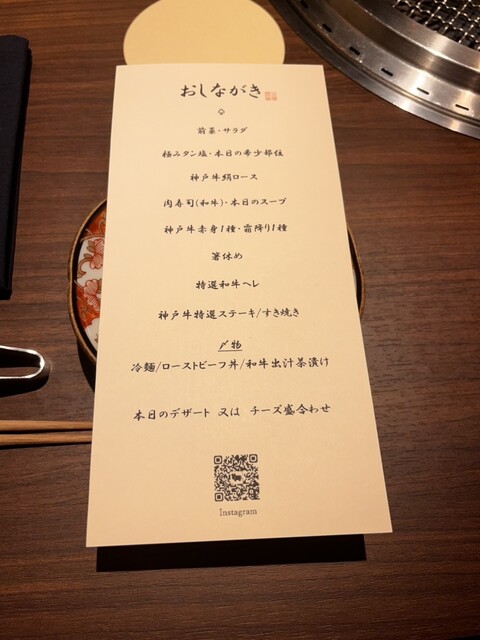 おしながき
前菜・サラダ
極みタン塩・本日の希少部位
神戸牛絹ロース
肉寿司(和牛)・本日のスープ
神戸牛赤身1種・霜降り1種
箸休め
特選和牛ヘレ
神戸牛特選ステーキ/すき焼き
〆物
冷麺/ローストビーフ丼/和牛出汁茶漬け
本日のデザート 又は チーズ盛合わせ
Instagram